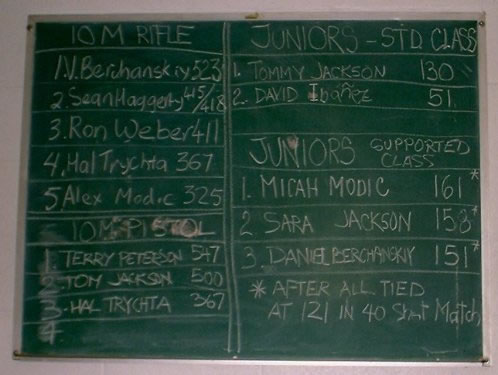 10 M RIFLE
1. V. Berchanskiy 523
2 Sean Haggerty 415/418
3. Ron Weber 411
4. Hal Trychta 367
5 Alex Modic 325
10M PISTOL
1. TERRY PETERSON 547
2. TOM JACKSON 500
3. HAL TRYCHTA 367
4
JUNIORS - STD CLASS
1. TOMMY JACKSON 130
2. DAVID IBAÑEZ 51
JUNIORS SUPPORTED
CLASS
1. MICAH MODIC 161*
2 SARA JACKSON 158*
3. DANIEL BERCHANSKIY 151*
* AFTER ALL TIED
AT 121 IN 40 Shot Match